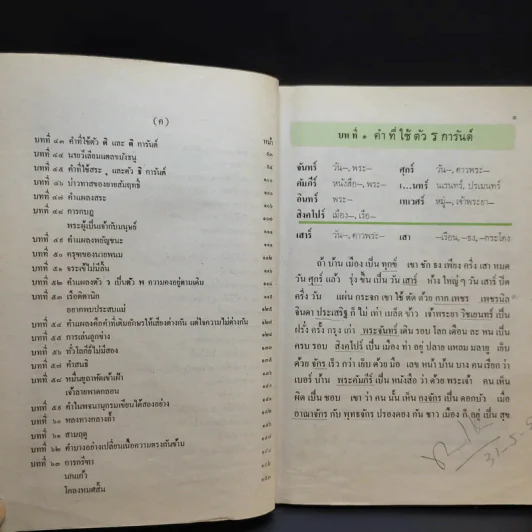 (ค)
หน้า
บทที่ ๔๓ คำที่ใช้ตัว
บทที่ ๔๔
บทที่ ๔๕ คำที่ใช้สระ
บทที่ ๔๖ บ่าวทาสของยายสัมฤทธิ์
บทที่ ๔๗ คำแผลงสระ
บทที่ ๔๘ การกบฏ
พระผู้เป็นเจ้ากับมนุษย์
บทที่ ๔๙ คำแผลงพยัญชนะ
บทที่ ๕๐ ครุฑของนายพนม
บทที่ ๕๑ จระเข้ไม่มีลิ้น
บทที่ ๕๒ คำแผลงตัว ว เป็นตัว พ ความคงอยู่ตามเดิม
บทที่ ๕๓
บทที่ ๕๔ คำแผลงคือคำที่เติมอักษรให้เสียงต่างกัน แต่ใจความไม่ต่างกัน
บทที่ ๕๕ การเล่นลูกช่าง
บทที่ ๕๖ ทั่วโลกก็ไม่มีสอง
บทที่ ๕๗ คำสนธิ
บทที่ ๕๘
บทที่ ๕๙ คำในพจนานุกรมเขียนได้สองอย่าง
บทที่ ๖๐ หลงทางกลางถ้ำ
บทที่ ๖๑ สามฤดู
บทที่ ๖๒ คำบางอย่างเปลี่ยนเนื้อความตรงกันข้าม
บทที่ ๖๓ การกรีฑา
๑
บทที่ ๑ คำที่ใช้ตัว ร การันต์
จันทร์ วัน–, พระ– ศุกร์ วัน–, ดาวพระ–
คัมภีร์ หนังสือ–, พระ– เ...นทร์ นเรนทร์, ปรเมนทร์
อินทร์ พระ– เทเวศร์ หมู่–, เจ้าพระยา–
สิงคโปร์ เมือง–, เรือ–
เสาร์ วัน–, ดาวพระ– เสา –เรือน, –ธง, –กระโดง
ถ้า บ้าน เมือง เป็น ทุกข์ เขา ชัก ธง เพียง ครึ่ง เสา หมด
วัน ศุกร์ แล้ว รุ่ง ขึ้น เป็น วัน เสาร์ ห้าง ใหญ่ ๆ วัน เสาร์ ปิด
ครึ่ง วัน แผ่น กระจก เขา ใช้ ตัด ด้วย กาก เพชร เพชรนิล
จินดา ประเสริฐ ก็ ไม่ เท่า เมล็ด ข้าว เจ้าพระยา วิชเยนทร์ เป็น
ฝรั่ง ครั้ง กรุง เก่า พระจันทร์ เดิน รอบ โลก เดือน ละ หน เป็น
ครบ รอบ สิงคโปร์ เป็น เมือง ท่า อยู่ ปลาย แหลม มลายู เย็บ
ด้วย จักร เร็ว กว่า เย็บ ด้วย มือ เลข หน้า บ้าน บาง คน เรียก ว่า
เบอร์ บ้าน พระคัมภีร์ เป็น หนังสือ ว่า ด้วย พระเจ้า คน เห็น
ผิด เป็น ชอบ เขา ว่า คน นั้น เห็น กงจักร เป็น ดอกบัว เมื่อ
อาณาจักร กับ พุทธจักร ปรองดอง กัน ชาว เมือง ก็ อยู่ เป็น สุข